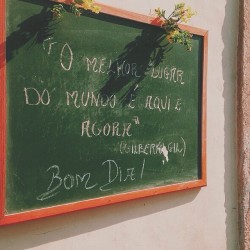 "O MELHOR LUGAR
DO MUNDO É AQUI E
AGORA"
(GILBERTO GIL)
BOM DIA!